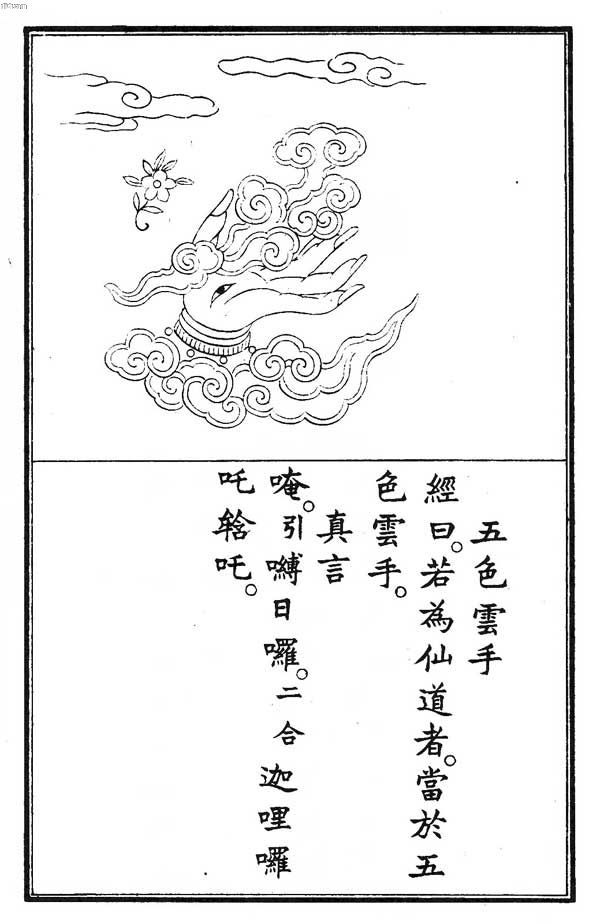 五色雲手
經曰。若為仙道者。當於五
色雲手。
真言
唵。引嚩日囉。二合迦哩囉
吒𤚥吒。